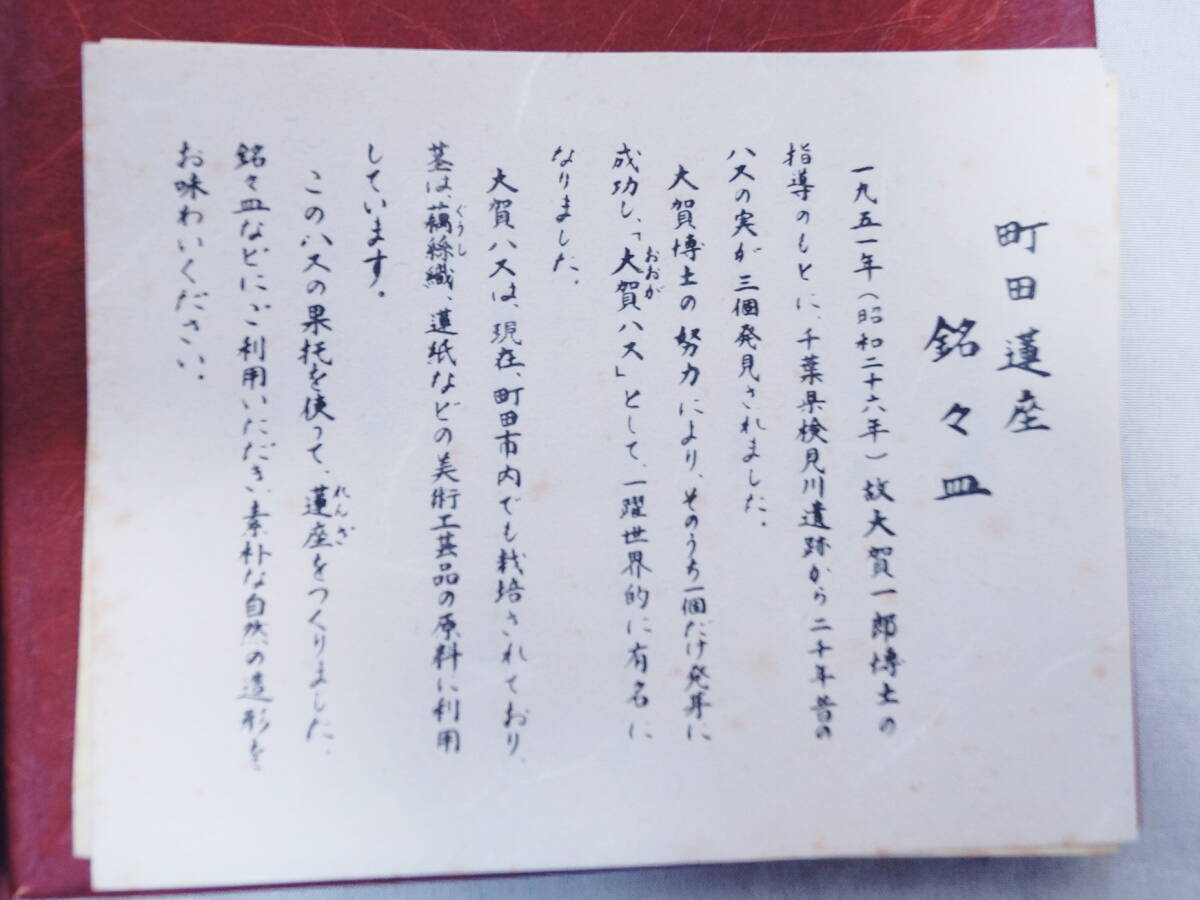 町田蓮座
銘々皿
一九五一年（昭和二十六年）故大賀一郎博士の
指導のもとに、千葉県検見川遺跡から二千年昔の
ハスの実が三個発見されました。
大賀博士の努力により、そのうち一個だけ発芽に
成功し、「大賀ハス」として、一躍世界的に有名に
おおが
なりました。
大賀ハスは、現在、町田市内でも栽培されており、
茎は、藕絲織、蓮紙などの美術工芸品の原料に利用
ぐうし
しています。
このハスの果托を使って、蓮座をつくりました。
れんざ
銘々皿などにご利用いただき、素朴な自然の造形を
お味わいください。